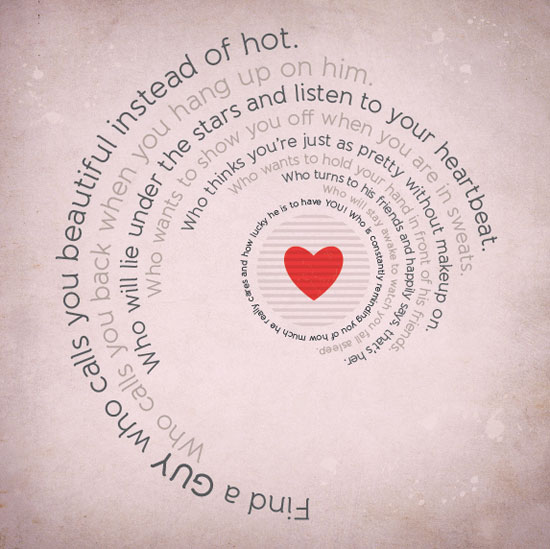 Find a GUY who calls you beautiful instead of hot.
Who calls you back when you hang up on him.
Who will lie under the stars and listen to your heartbeat.
Who wants to show you off when you are in sweats.
Who thinks you're just as pretty without makeup on.
Who wants to hold your hand in front of his friends.
Who turns to his friends and happily says, that's her.
Who will stay awake to watch you fall asleep.
Who is constantly reminding you of how much he really cares and how lucky he is to have YOU!